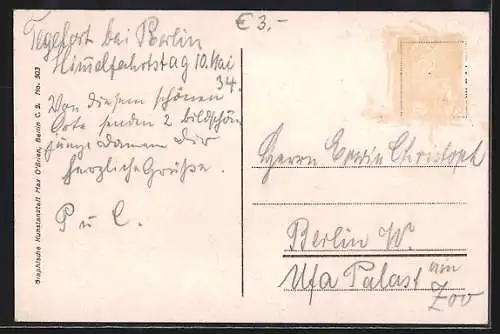 € 3,-
Tegefort bei Berlin
Himmelfahrtstag 10. Mai
34.
Von diesem schönen
Orte senden 2 bildschön
junge Damen dir
herzliche Grüße.
P u C.
Graphische Kunstanstalt Max O'Brien, Berlin C. 2. No. 303
Herrn Erwin Christoph
Berlin W.
Ufa Palast am
Zoo